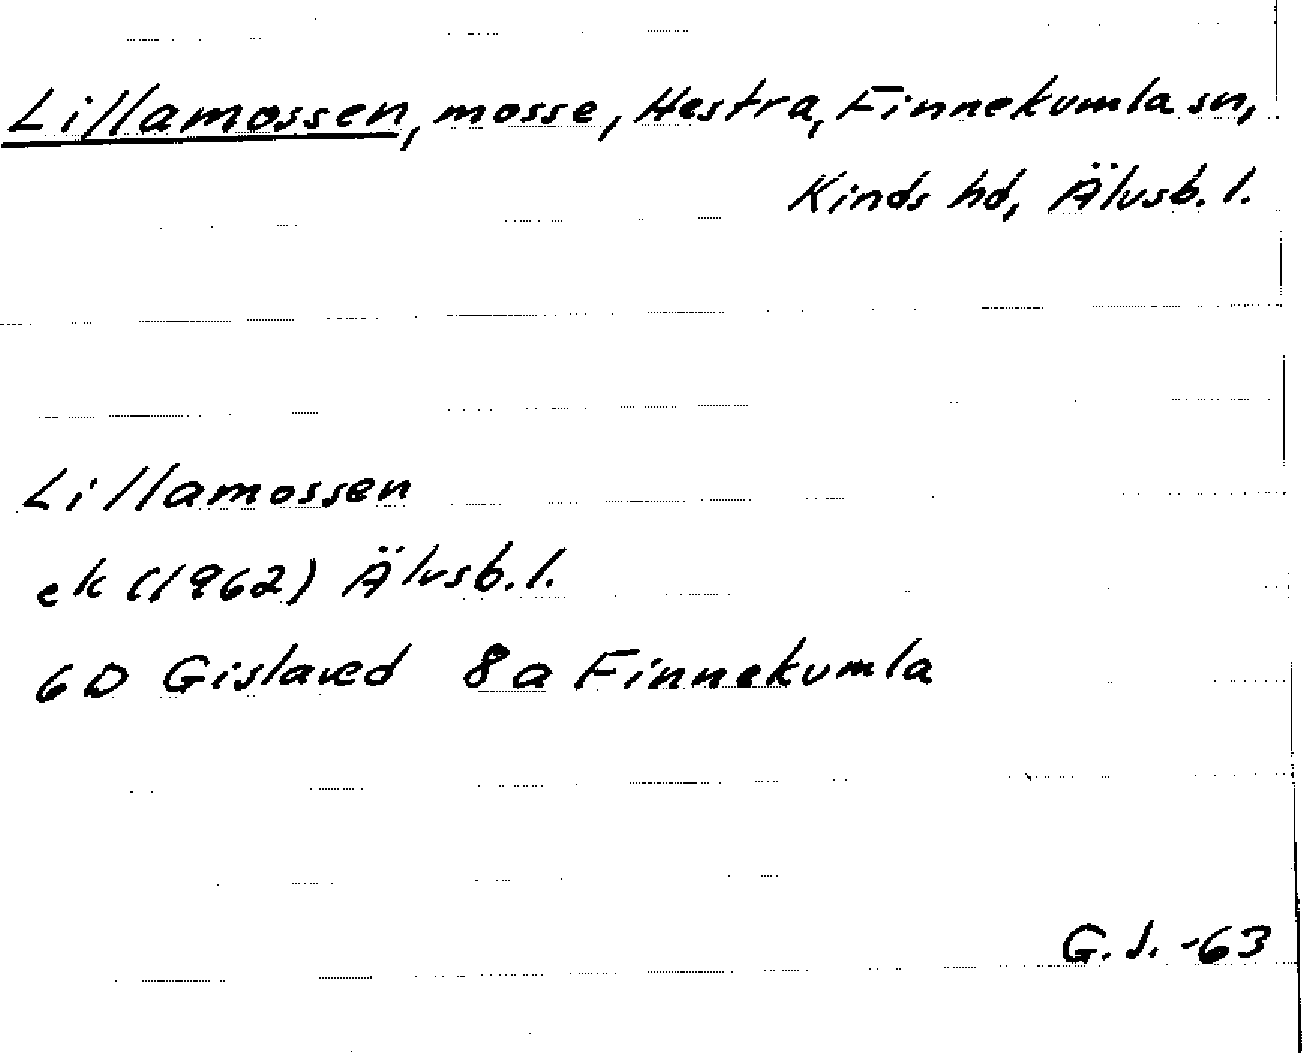 Lillamossen, mosse, Hestra, Finnekumla sn,
Kinds hd, Älvsb. l.
Lillamossen
ek (1962) Älvsb. l.
6D Gislaved 8a Finnekumla
G. J. -63